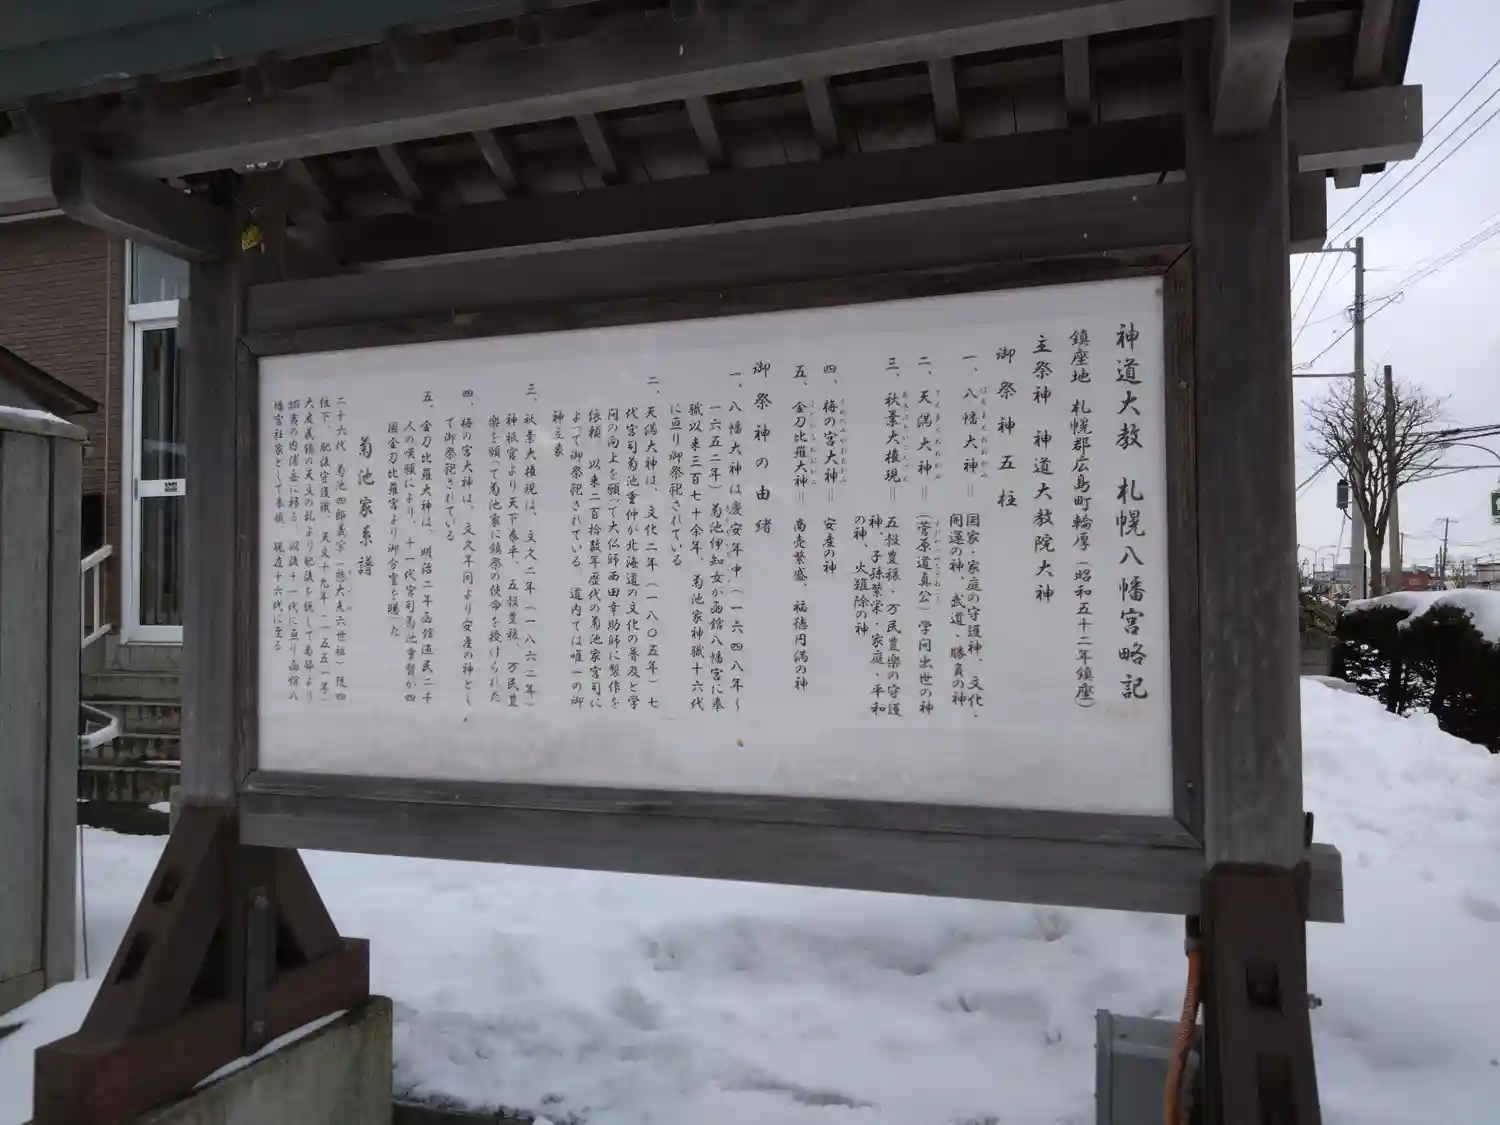 神道大教 札幌八幡宮略記
鎮座地 札幌郡広島町輪厚(昭和五十二年鎮座)
主祭神 神道大教院大神
御祭神五柱
一、八幡大神＝国家・家庭の守護神、文化、
開運の神、武道・勝負の神
二、天満大神＝(菅原道真公)学問出世の神
三、秋葉大権現＝五穀豊穣・万民豊楽の守護
神、子孫繁栄・家庭・平和
の神、火難除の神
四、梅の宮大神＝安産の神
五、金刀比羅大神＝商売繁盛、福徳円満の神
御祭神の由緒
一、八幡大神は慶安年中(一六四八年〜
一六五二年)菊池伊知女が函館八幡宮に奉
職以来三百七十余年、菊池家神職十六代
に亘り御祭祀されている
二、天満大神は、文化二年(一八〇五年)七
代宮司菊池重仲が北海道の文化の普及と学
問の向上を願って大仏師西田幸助師に製作を
依頼 以来二百拾数年歴代の菊池家宮司に
よって御祭祀されている。道内では唯一の御
神立象
三、秋葉大権現は、文久二年(一八六二年)
神祇官より天下泰平、五穀豊穣、万民豊
楽を願って菊池家に鎮祭の使命を授けられた
四、梅の宮大神は、文久年間より安産の神とし
て御祭祀されている
五、金刀比羅大神は、明治二年函館漁民二千
人の嘆願により、十一代宮司菊池重賢が四
国金刀比羅宮より御分霊を賜った
菊池家系譜
二十六代 菊池四郎義宗
位下、肥後守護職、天文十九年(一五五一年)
大友義鎮の天文の乱より肥後を脱して
蝦夷の内浦岳に移る。以後十一代に亘り函館八
幡宮社家として奉職 現在十六代に至る